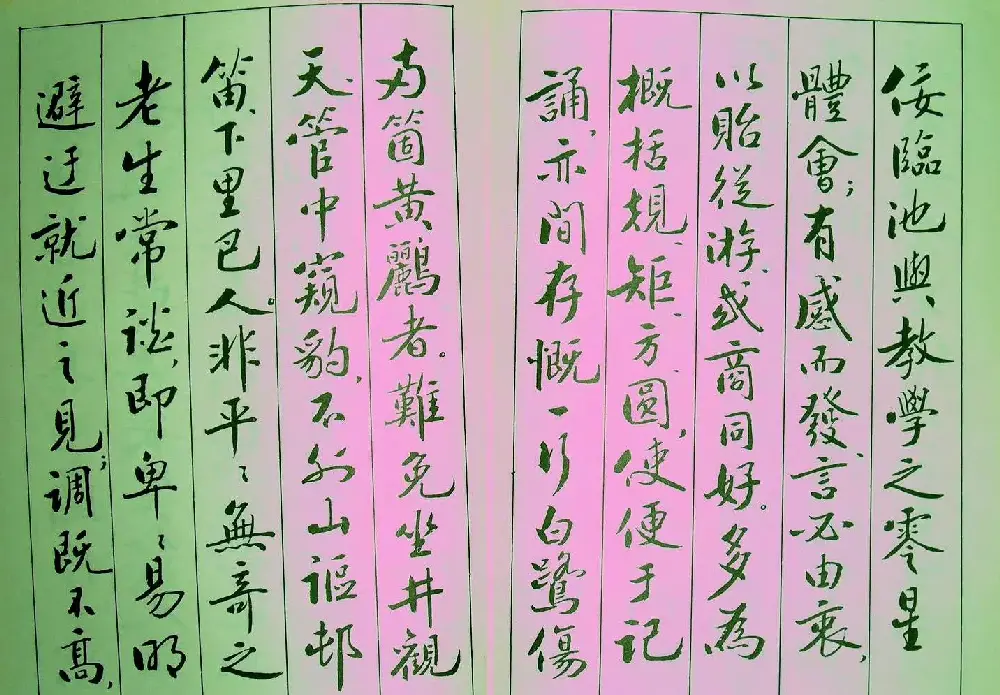 佞臨池與教學之零星
體會；有感而發、言必由衷，
以貽從游、或商同好。多為
概括規、矩、方、圓，使便于記
誦，亦間存慨一行白鷺傷
两箇黄鸝者。難免坐井觀
天、管中窺豹，不外山謳邨
笛、下里巴人。非平〻無奇之
老生常談，即卑〻易明
避迂就近之見；调既不高，